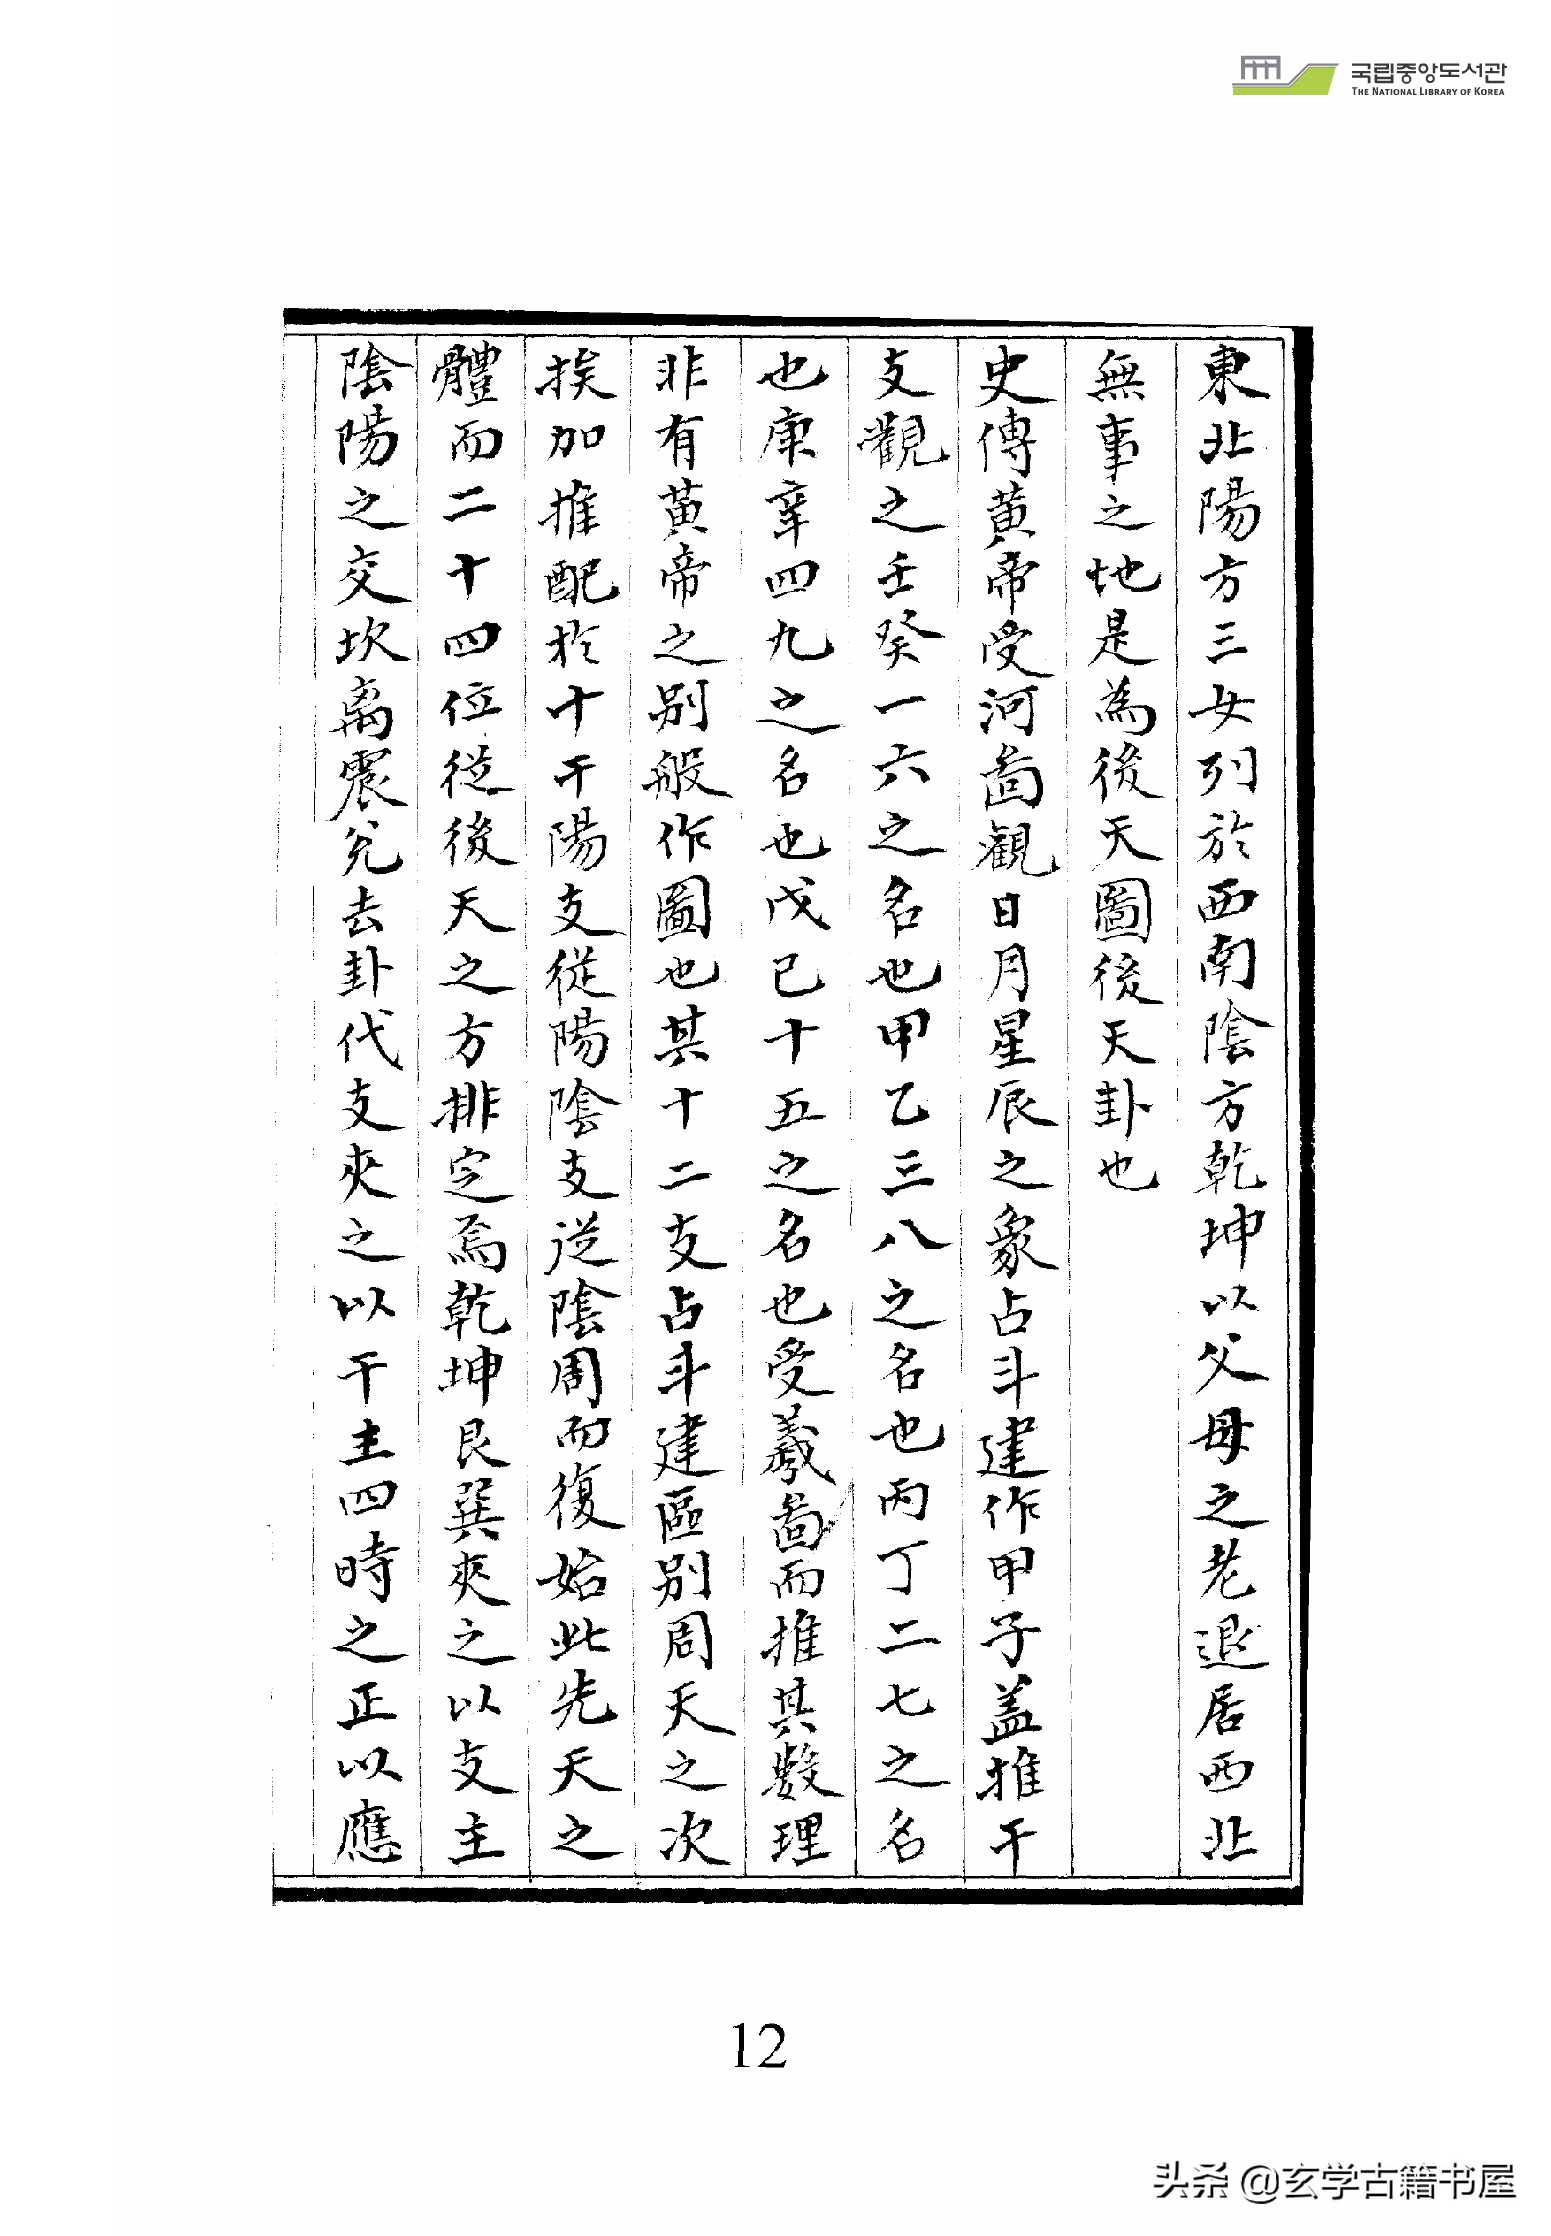 국립중앙도서관
THE NATIONAL LIBRARY OF KOREA
東北陽方三女列於西南陰方乾坤以父母之老退居西北
無事之地是為後天圖後天卦也
史傳黃帝受河啚觀日月星辰之象占斗建作甲子盖推干
支觀之壬癸一六之名也甲乙三八之名也丙丁二七之名
也庚辛四九之名也戊己十五之名也受羲啚而推其數理
非有黃帝之別般作圖也其十二支占斗建區別周天之次
挨加推配於十干陽支從陽陰支从陰周而復始此先天之
體而二十四位從後天之方排定焉乾坤艮巽夾之以支主
陰陽之交坎离震兊去卦代支夾之以干主四時之正以應
12
头条 @玄学古籍书屋